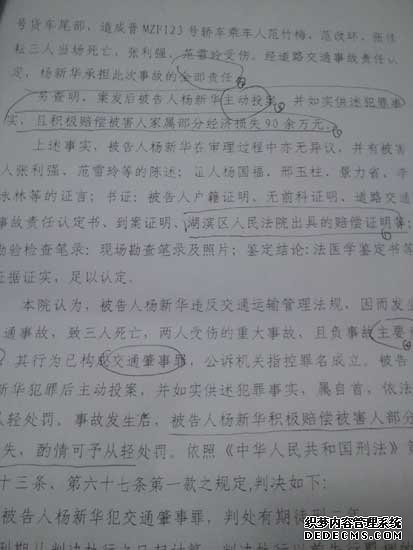 号货车尾部，造成晋MZF123号轿车乘车人范竹梅、范改环、张佳
耘三人当场死亡，张利强、范雪玲受伤。经道路交通事故责任认
定，杨新华承担此次事故的全部责任。
另查明，案发后被告人杨新华主动投案，并如实供述犯罪事
实，且积极赔偿被害人家属部分经济损失90余万元。
上述事实，被告人杨新华在审理过程中亦无异议，并有被害
人张利强、范雪玲等的陈述；证人杨国福、邢玉柱、景力省、李
水林等的证言；书证：被告人户籍证明、无前科证明、道路交通
事故责任认定书、到案证明、湖滨区人民法院出具的赔偿证明等；
勘验检查笔录：现场勘查笔录及照片；鉴定结论：法医学鉴定书等
证据证实，足以认定。
本院认为，被告人杨新华违反交通运输管理法规，因而发生
通事故，致三人死亡，两人受伤的重大事故，且负事故主要
，其行为已构成交通肇事罪，公诉机关指控罪名成立。被告
新华犯罪后主动投案，并如实供述犯罪事实，属自首，依法
从轻处罚。事故发生后，被告人杨新华积极赔偿被害人部分
失，酌情可予从轻处罚。依照《中华人民共和国刑法》第
十三条、第六十七条第一款之规定，判决如下：
被告人杨新华犯交通肇事罪，判处有期徒刑二年
刑期从判决执行之日起计算
织梦内容管理系统
DEDECMS.COM